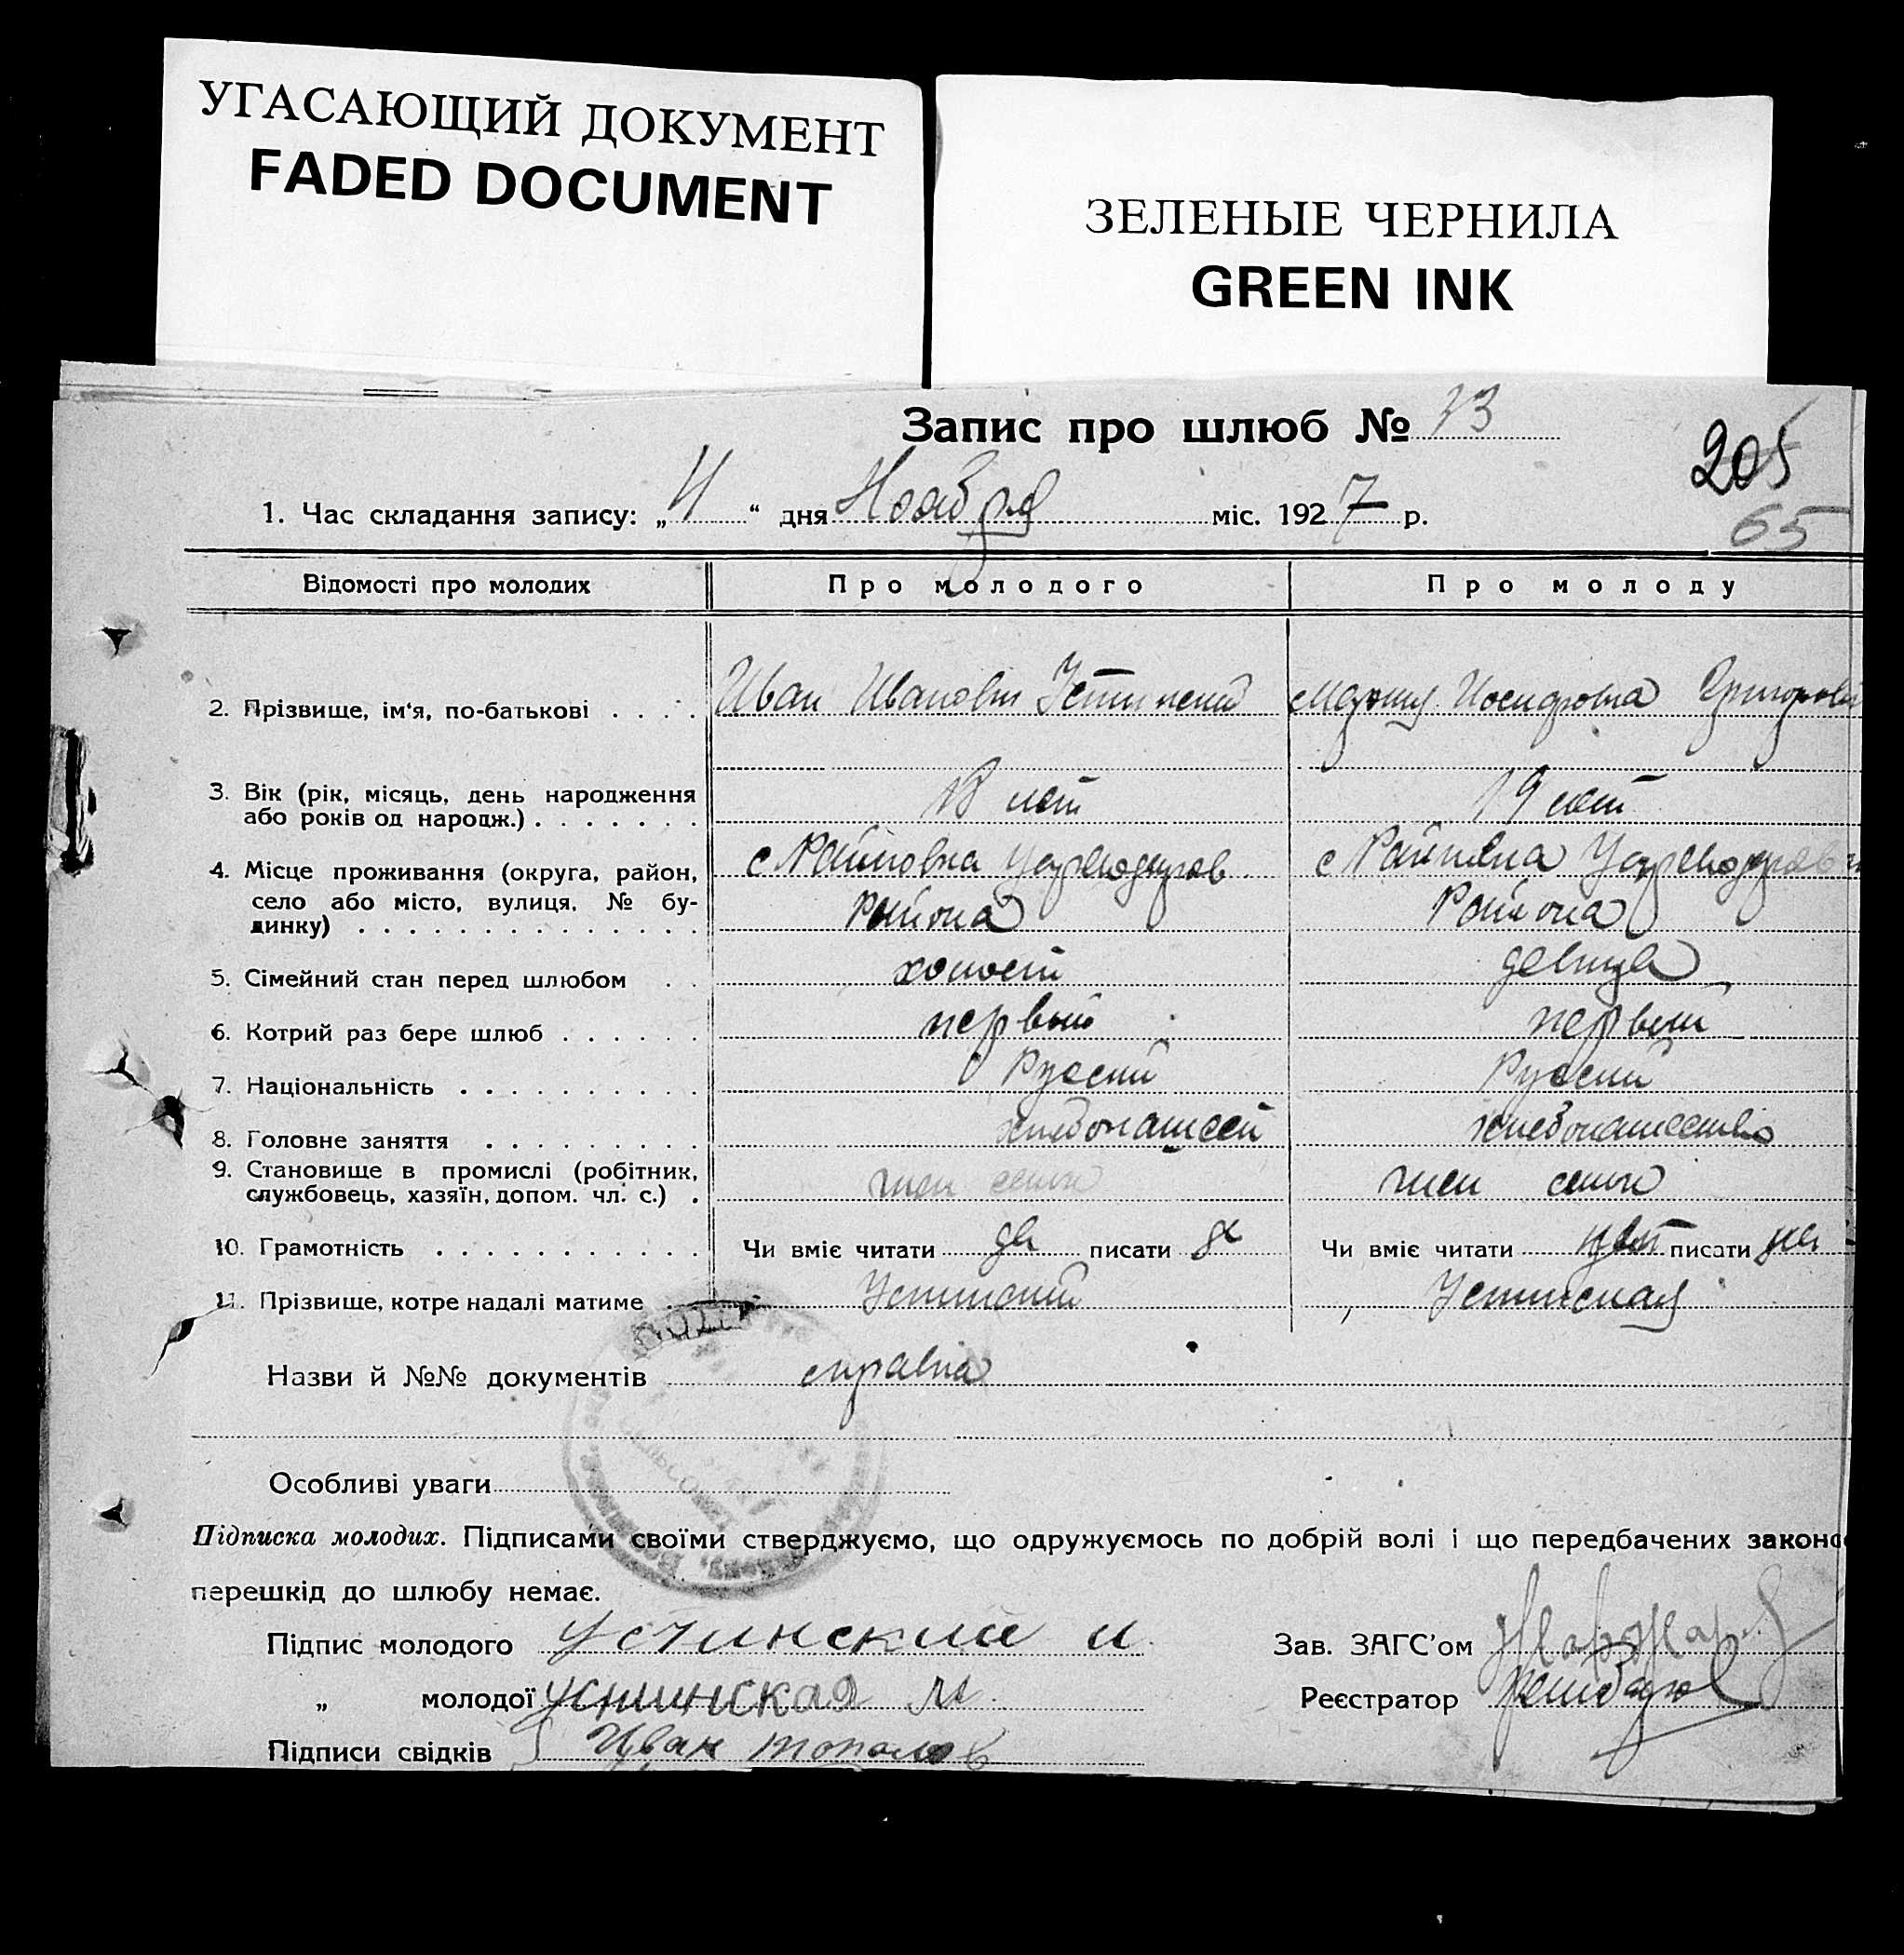 УГАСАЮЩИЙ ДОКУМЕНТ
FADED DOCUMENT
ЗЕЛЕНЫЕ ЧЕРНИЛА
GREEN INK
Запис про шлюб № 33
205
65
1. Час складання запису: „4“ дня Ноября міс. 1927 р.
Відомості про молодих Про молодого Про молоду
2. Прізвище, ім‘я, по-батькові . . . . Иван Иванович Устинский Иосифовна
3. Вік (рік, місяць, день народження 18 лет 19 лет
або років од народж.) . . . . . . .
4. Місце проживання (округа, район, с с
село або місто, вулиця, № бу- Района Района
динку) . . . . . . . . . . . . . .
5. Сімейний стан перед шлюбом . . холост девица
6. Котрий раз бере шлюб . . . . . . первый первый
7. Національність . . . . . . . . . . Руский Руский
8. Головне заняття . . . . . . . . . хлебопашест хлебопашество
9. Становище в промислі (робітник, член семьи член семьи
службовець, хазяїн, допом. чл. с.) .
10. Грамотність . . . . . . . . . . . Чи вміє читати да писати да Чи вміє читати нет писати
11. Прізвище, котре надалі матиме . . Устинский Устинская
Назви й №№ документів справка
Особливі уваги
Підписка молодих. Підписами своїми стверджуємо, що одружуємось по добрій волі і що передбачених законо
перешкід до шлюбу немає.
Підпис молодого Устинский и. Зав. ЗАГС’ом
„ молодої устинская м. Реєстратор
Підписи свідків Иван тополов